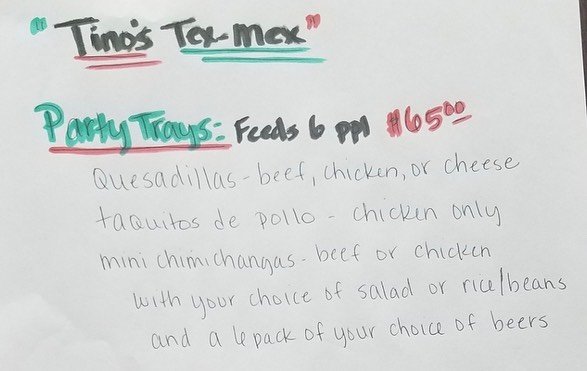 "Tino's Tex-Mex"
Party Trays: Feeds 6 ppl $65.00
Quesadillas - beef, chicken, or cheese
taquitos de pollo - chicken only
mini chimichangas - beef or chicken
with your choice of salad or rice/beans
and a 6 pack of your choice of beers